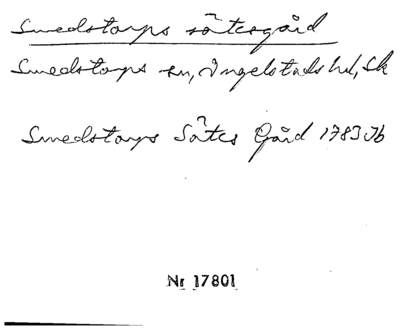 Smedstorps sätesgård
Smedstorps sn, Ingelstads hd, Sk
Smedstorps Sätes Gård 1783 Jb
Nr 17801